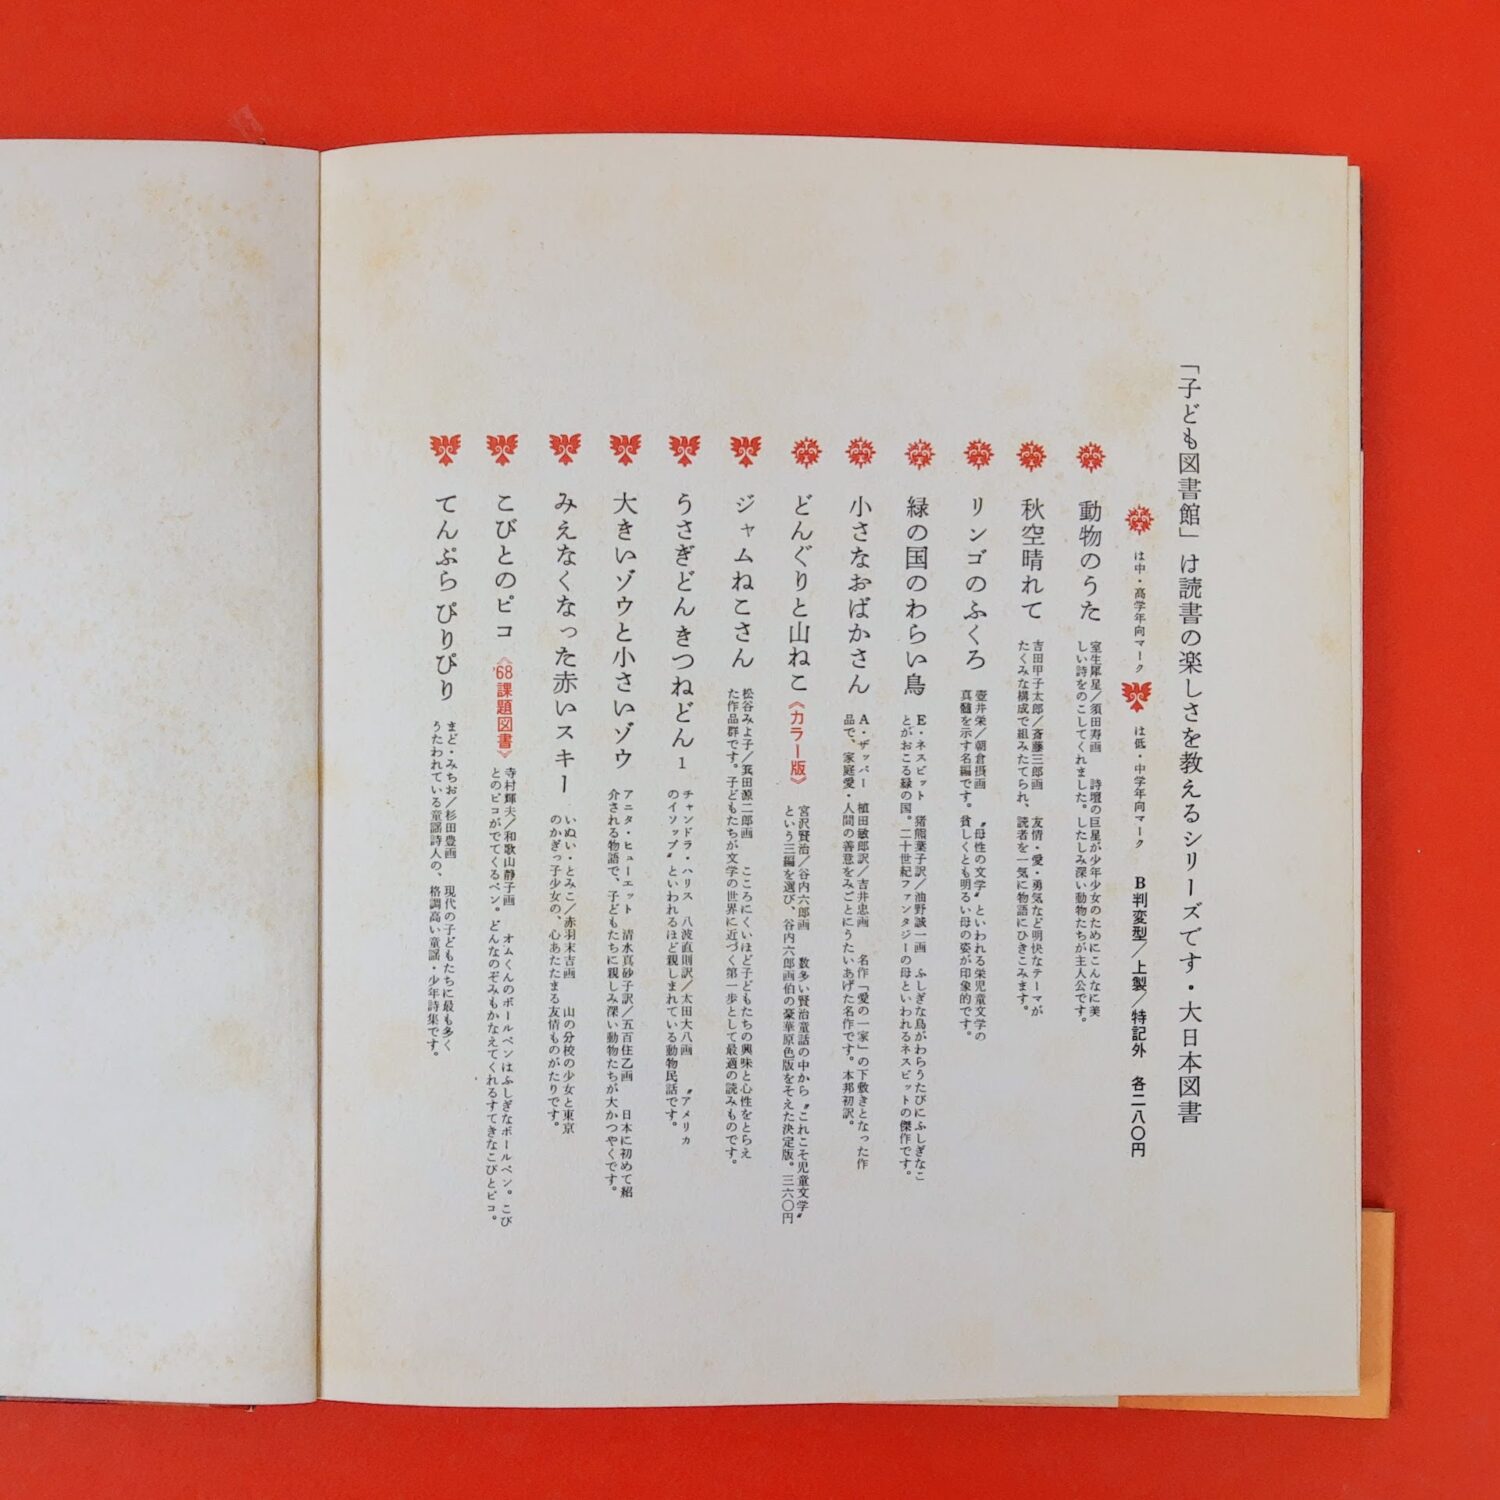 「子ども図書館」は読書の楽しさを教えるシリーズです・大日本図書
は中・高学年向マーク は低・中学年向マーク B判変型/上製/特記外 各二八〇円
動物のうた
室生犀星/須田寿画 詩壇の巨星が少年少女のためにこんなに美
しい詩をのこしてくれました。したしみ深い動物たちが主人公です。
秋空晴れて
吉田甲子太郎/斎藤三郎画 友情・愛・勇気など明快なテーマが
たくみな構成で組みたてられ、読者を一気に物語にひきこみます。
リンゴのふくろ
壺井栄/朝倉摂画 〝母性の文学〟といわれる栄児童文学の
真髄を示す名編です。貧しくとも明るい母の姿が印象的です。
緑の国のわらい鳥
E・ネスビット 猪熊葉子訳/油野誠一画 ふしぎな鳥がわらうたびにふしぎなこ
とがおこる緑の国。二十世紀ファンタジーの母といわれるネスビットの傑作です。
小さなおばかさん
A・ザッパー 植田敏郎訳/吉井忠画 名作「愛の一家」の下敷きとなった作
品で、家庭愛・人間の善意をみごとにうたいあげた名作です。本邦初訳。
どんぐりと山ねこ《カラー版》
宮沢賢治/谷内六郎画 数多い賢治童話の中から〝これこそ児童文学〟
という三編を選び、谷内六郎画伯の豪華原色版をそえた決定版。三六〇円
ジャムねこさん
松谷みよ子/箕田源二郎画 こころにくいほど子どもたちの興味と心性をとらえ
た作品群です。子どもたちが文学の世界に近づく第一歩として最適の読みものです。
うさぎどん きつねどん 1
チャンドラ・ハリス 八波直則訳/太田大八画 〝アメリカ
のイソップ〟といわれるほど親しまれている動物民話です。
大きいゾウと小さいゾウ
アニタ・ヒューエット 清水真砂子訳/五百住乙画 日本に初めて紹
介される物語で、子どもたちに親しみ深い動物たちが大かつやくです。
みえなくなった赤いスキー
いぬい・とみこ/赤羽末吉画 山の分校の少女と東京
のかぎっ子少女の、心あたたまる友情ものがたりです。
こびとのピコ《'68課題図書》
寺村輝夫/和歌山静子画 オムくんのボールペンはふしぎなボールペン。こび
とのピコがでてくるペン。どんなのぞみもかなえてくれるすてきなこびとピコ。
てんぷら ぴりぴり
まど・みちお/杉田豊画 現代の子どもたちに最も多く
うたわれている童謡詩人の、格調高い童謡・少年詩集です。